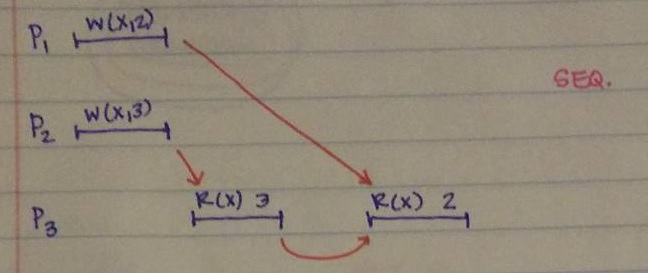 P1 W(x,2)
SEQ.
P2 W(x,3)
P3 R(x) 3 R(x) 2